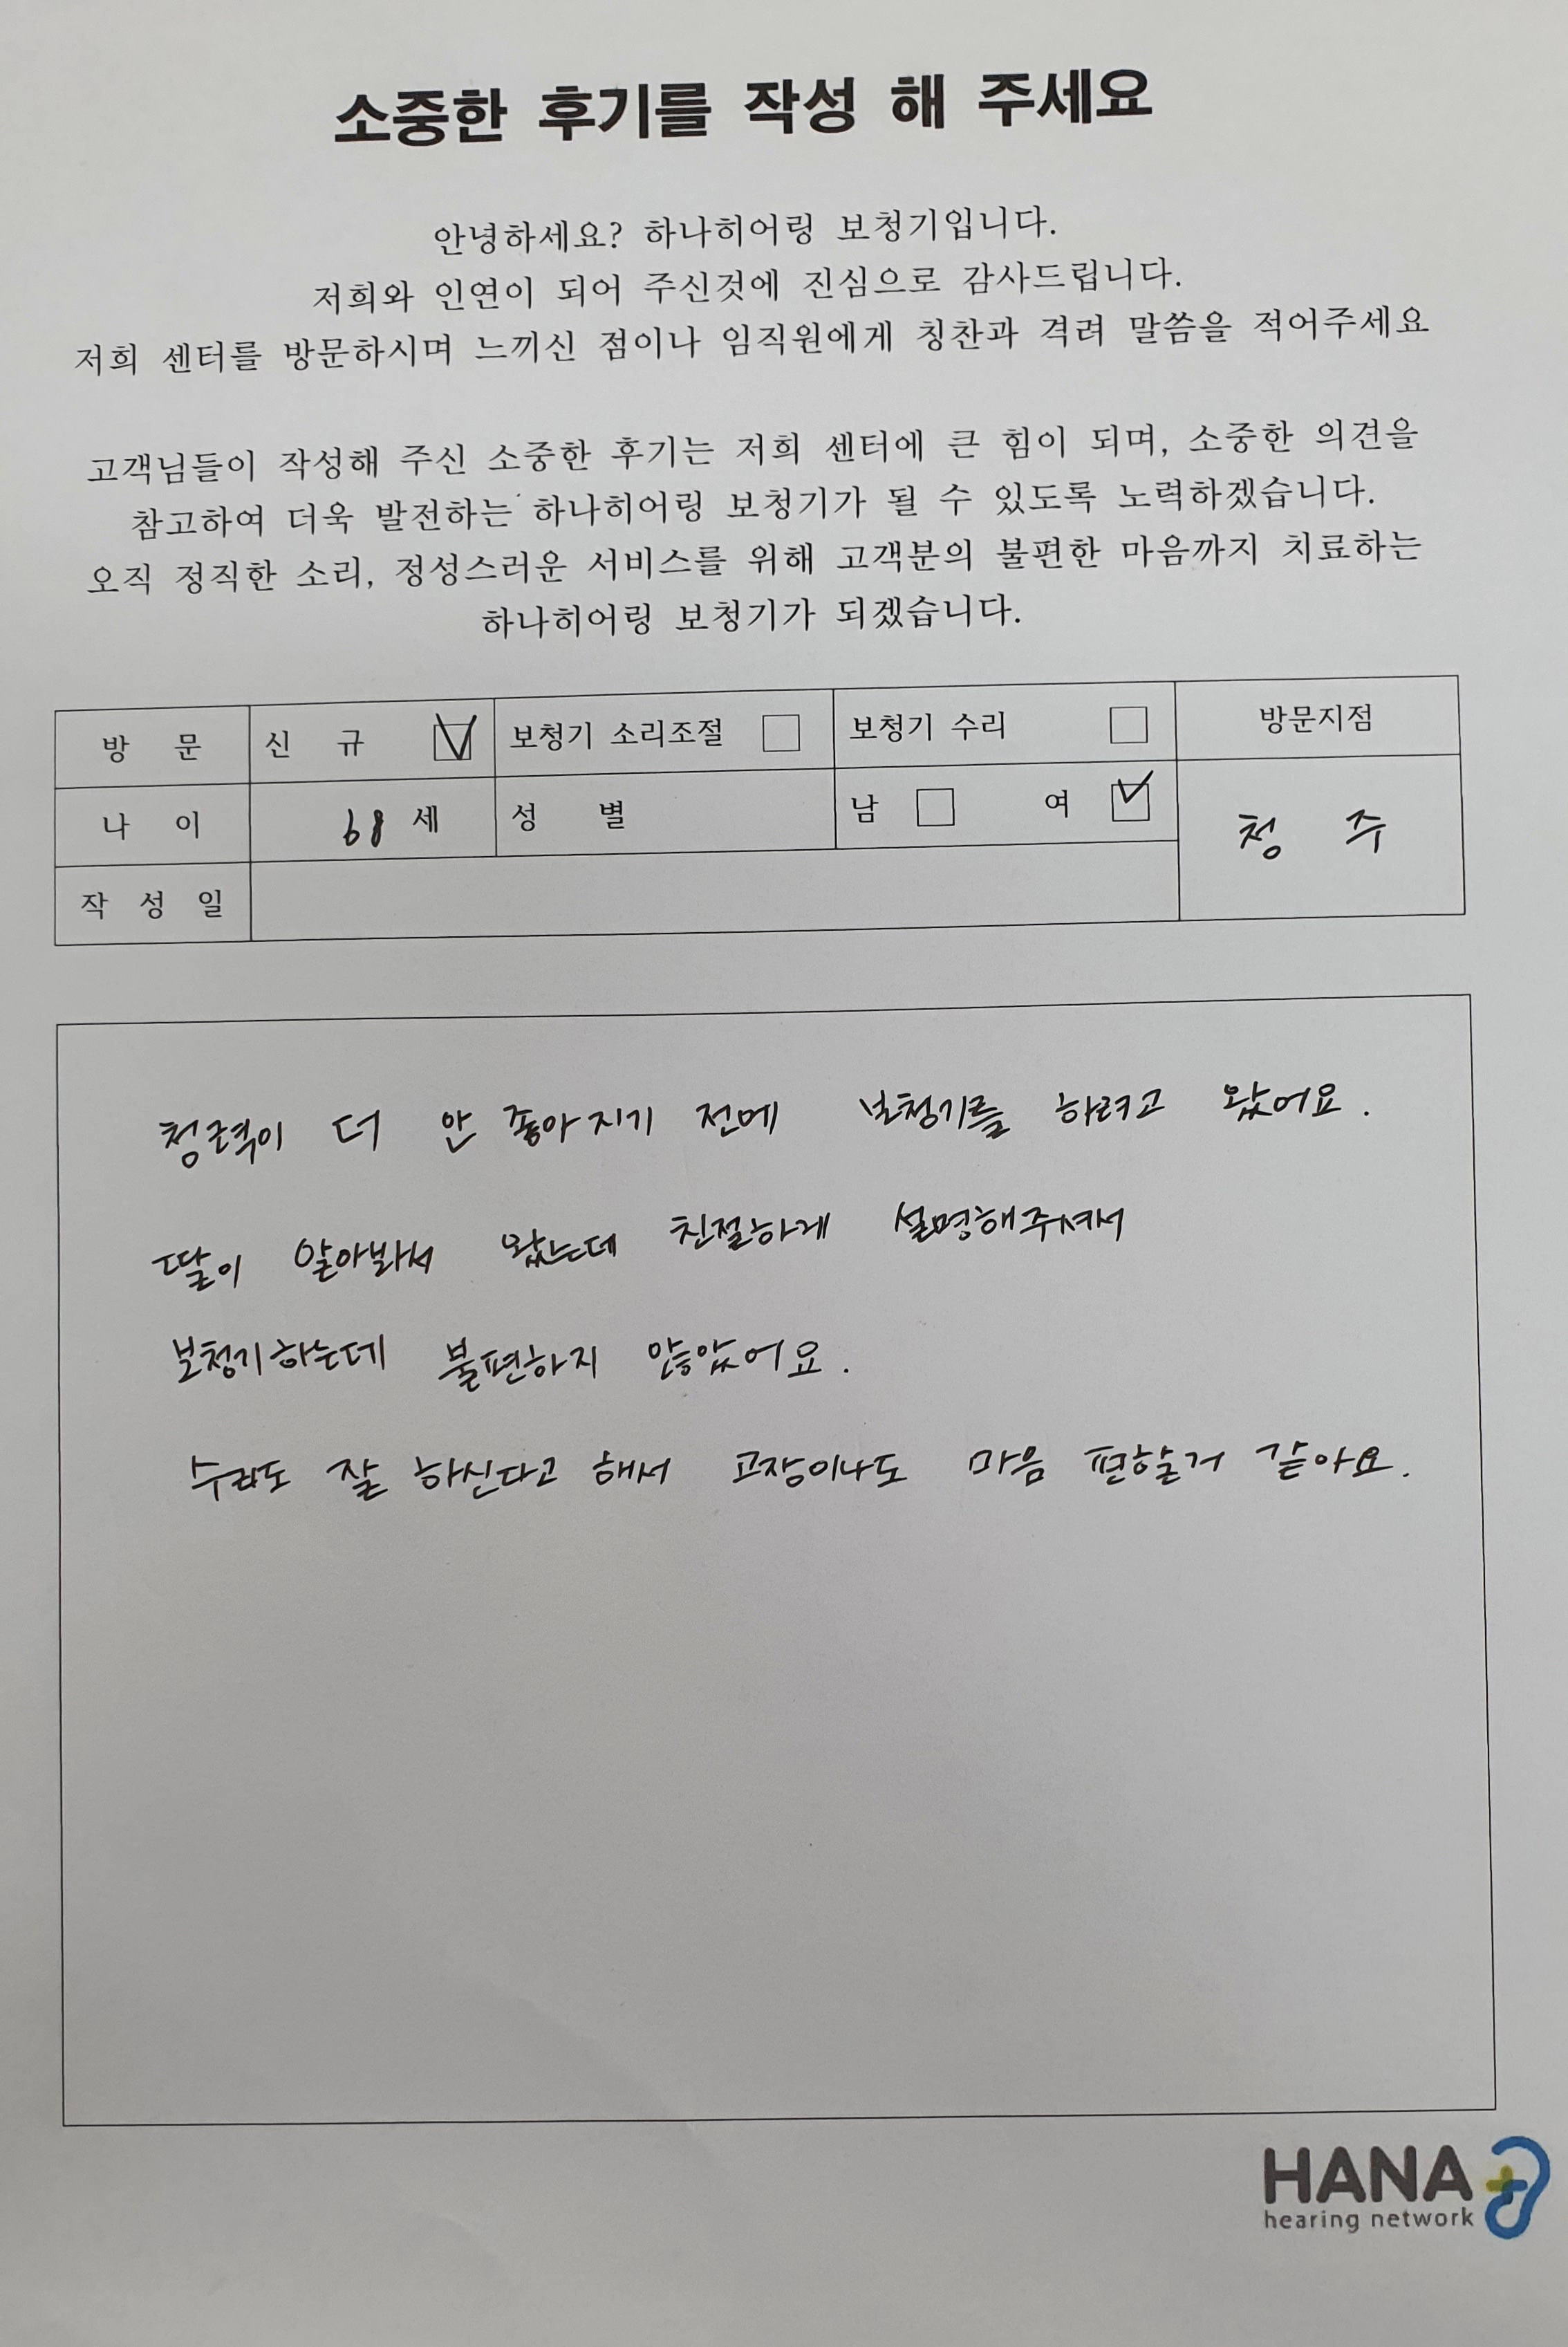 소중한 후기를 작성 해 주세요
안녕하세요? 하나히어링 보청기입니다.
저희와 인연이 되어 주신것에 진심으로 감사드립니다.
저희 센터를 방문하시며 느끼신 점이나 임직원에게 칭찬과 격려 말씀을 적어주세요
고객님들이 작성해 주신 소중한 후기는 저희 센터에 큰 힘이 되며, 소중한 의견을
참고하여 더욱 발전하는 하나히어링 보청기가 될 수 있도록 노력하겠습니다.
오직 정직한 소리, 정성스러운 서비스를 위해 고객분의 불편한 마음까지 치료하는
하나히어링 보청기가 되겠습니다.
방 문 신 규 보청기 소리조절 보청기 수리 방문지점
나 이 68 세 성 별 남 여 청 주
작 성 일
청력이 더 안 좋아지기 전에 보청기를 하려고 왔어요.
딸이 알아봐서 왔는데 친절하게 설명해주셔서
보청기하는데 불편하지 않았어요.
수리도 잘 하신다고 해서 고장이나도 마음 편할거 같아요.
HANA
hearing network